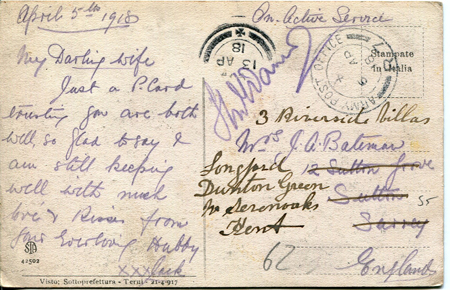 April 5th 1918
On Active Service
My Darling wife
Just a P. Card
trusting you are both
well, so glad to say I
am still keeping
well with much
love & Kisses from
your Everloving Hubby
xxx Jack
STA
42502
Visto: Sottoprefettura - Terni - 21-4-917
13
AP
18
ARMY POST OFFICE
5
AP
18
Stampate
in Italia
3 Riverside Villas
Mrs J. A. Bateman
Longford
12 Sutton Grove
Dunton Green
Sutton
nr Sevenoaks
Surrey
Kent
62
England